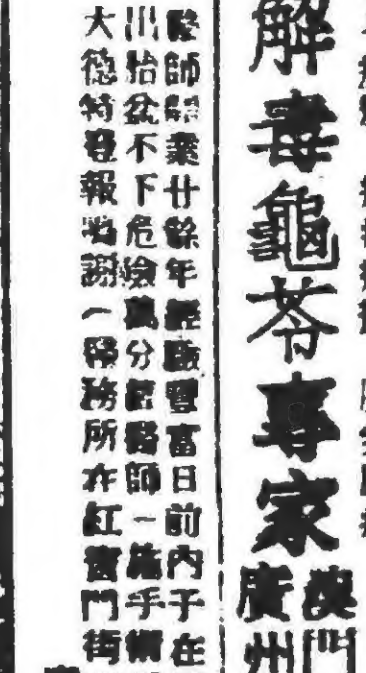 解毒龜苓專家
澳門
廣州
師業廿餘年經驗豐富日前內子在
出胎盆不下危險萬分醫師一施手術
大德特登報鳴謝（醫務所在紅窗門街